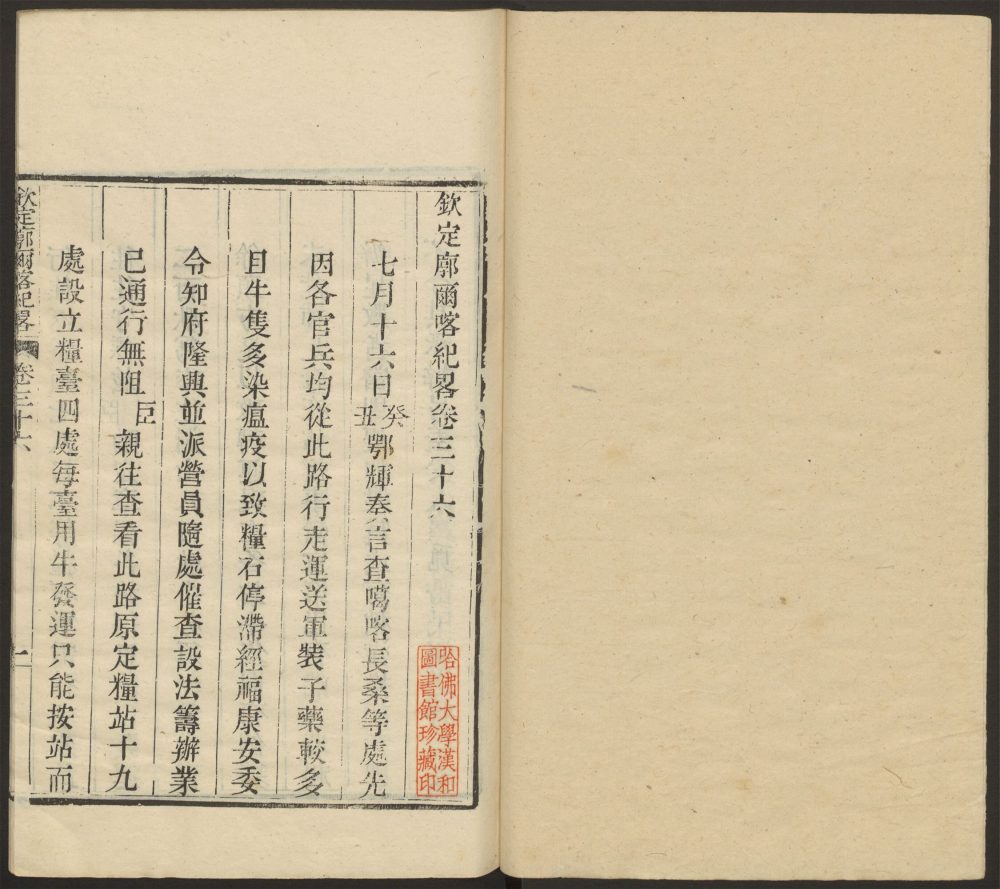 欽定廓爾喀紀畧卷三十六
七月十六日癸丑鄂輝奏言查噶喀長桑等處先
因各官兵均從此路行走運送軍裝子藥較多
且牛隻多染瘟疫以致糧石停滯經福康安委
令知府隆興並派營員隨處催查設法籌辦業
已通行無阻臣親往查看此路原定糧站十九
處設立糧臺四處每臺用牛發運只能按站而
欽定廓爾喀紀畧
卷三十六
一
哈佛大學漢和
圖書館珍藏印